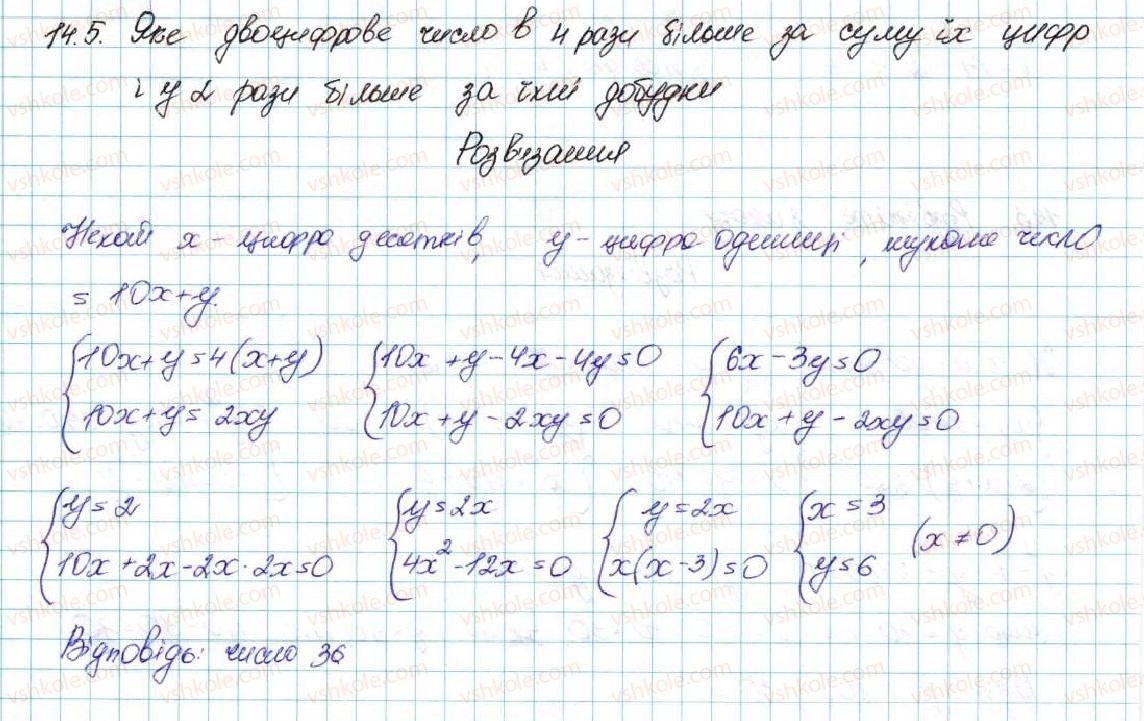 14.5. Яке двоцифрове число в 4 рази більше за суму їх цифр
і у 2 рази більше за їхій добудки
Розв'язання
Нехай x - цифра десятків, y - цифра одиниці, шукоме число
= 10x+y.
10x+y=4(x+y) 10x+y-4x-4y=0 6x-3y=0
10x+y=2xy 10x+y-2xy=0 10x+y-2xy=0
y=2 y=2x y=2x x=3
10x+2x-2x·2x=0 4x²-12x=0 x(x-3)=0 y=6 (x≠0)
Відповідь: число 36